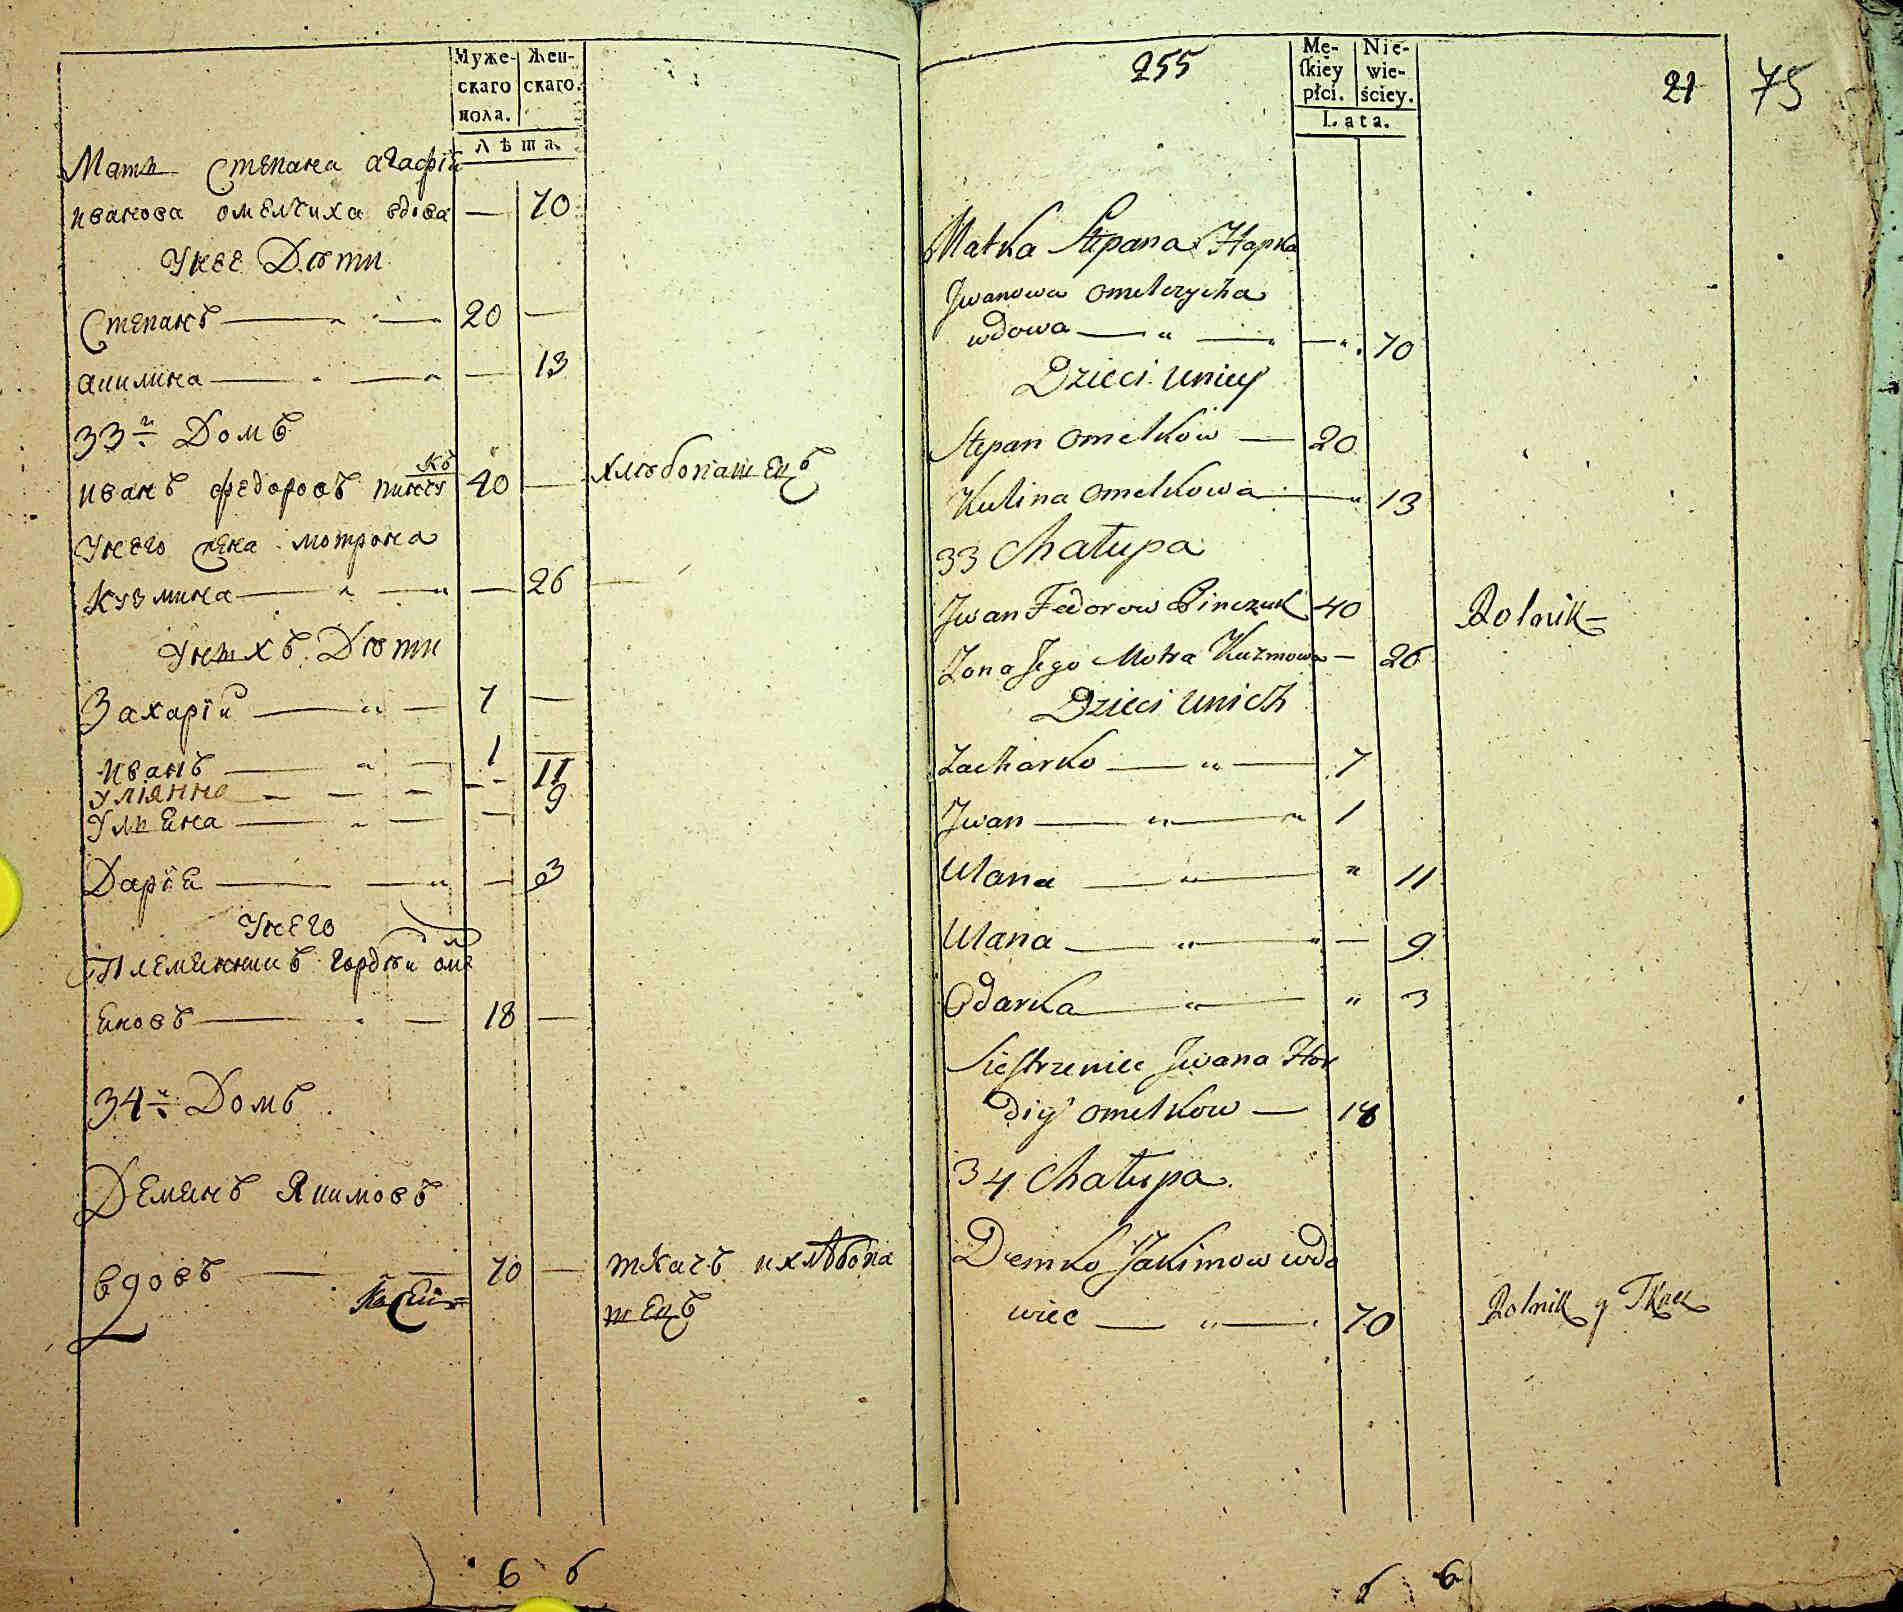 Муже-
скаго
пола.
Жен-
скаго.
Лѣта.
Мать Степана агафія
иванова омелчиха вдова — 70
Унее Дѣти
Степанъ — 20 —
акилина — 13
33й Домъ
иванъ федоровъ пинчукъ 40 — хлѣбопашецъ
Унего жена мотрона
кузмина — 26
Унихъ Дѣти
Захарій — 7 —
иванъ — 1 —
улiянна — 11
Ульяна — 9
Дарія — 3
Унего
Племенникъ гордѣй омел
яновъ — 18 —
34й Домъ
Демянъ Якимовъ
вдовъ — 70 — ткачъ и хлѣбопа
шецъ
6 6
255
Me-
ſkiey
płci.
Nie-
wie-
ściey.
Lata.
21 75
Matka Stepana Hapka
Jwanowa omelczycha
wdowa — 70
Dzieci uniey
Stepan omelkow — 20
Kulina omelkowa — 13
33 Chałupa
Jwan Fedorow Pinczuk 40 Rolnik
Zona Jego Motra Kuzmowa — 26
Dzieci unich
Zacharko — 7
Jwan — 1
Ulana — 11
Ulana — 9
Odarka — 3
Siestrzeniec Jwana Hor
diy omelkow — 18
34 Chałupa
Demko Jakimow wdo
wiec — 70 Rolnik y Tkacz
6 6